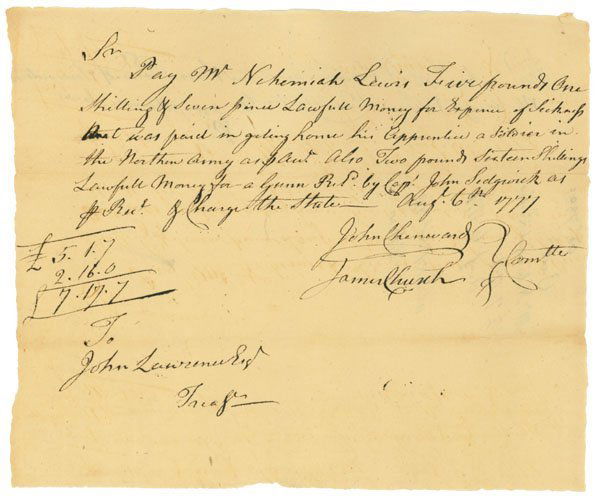 Sr
Pay Mr Nehemiah Lewis Five pounds One
Shilling & Seven pence Lawfull Money for Expence of Sickness
that was paid in geting home his Apprentice a Soldier in
the Northen Army as pr Acct. Also Two pounds Sixteen Shillings
Lawfull Money for a Gunn Recd. by Capt. John Sedgwick as
pr Rect. & Charge the State Augt. 6th 1777
£5.1.7
2.16.0
£7.17.7
John Chenevard
James Church
Comtte
To
John Lawrence Esqr
Treasr